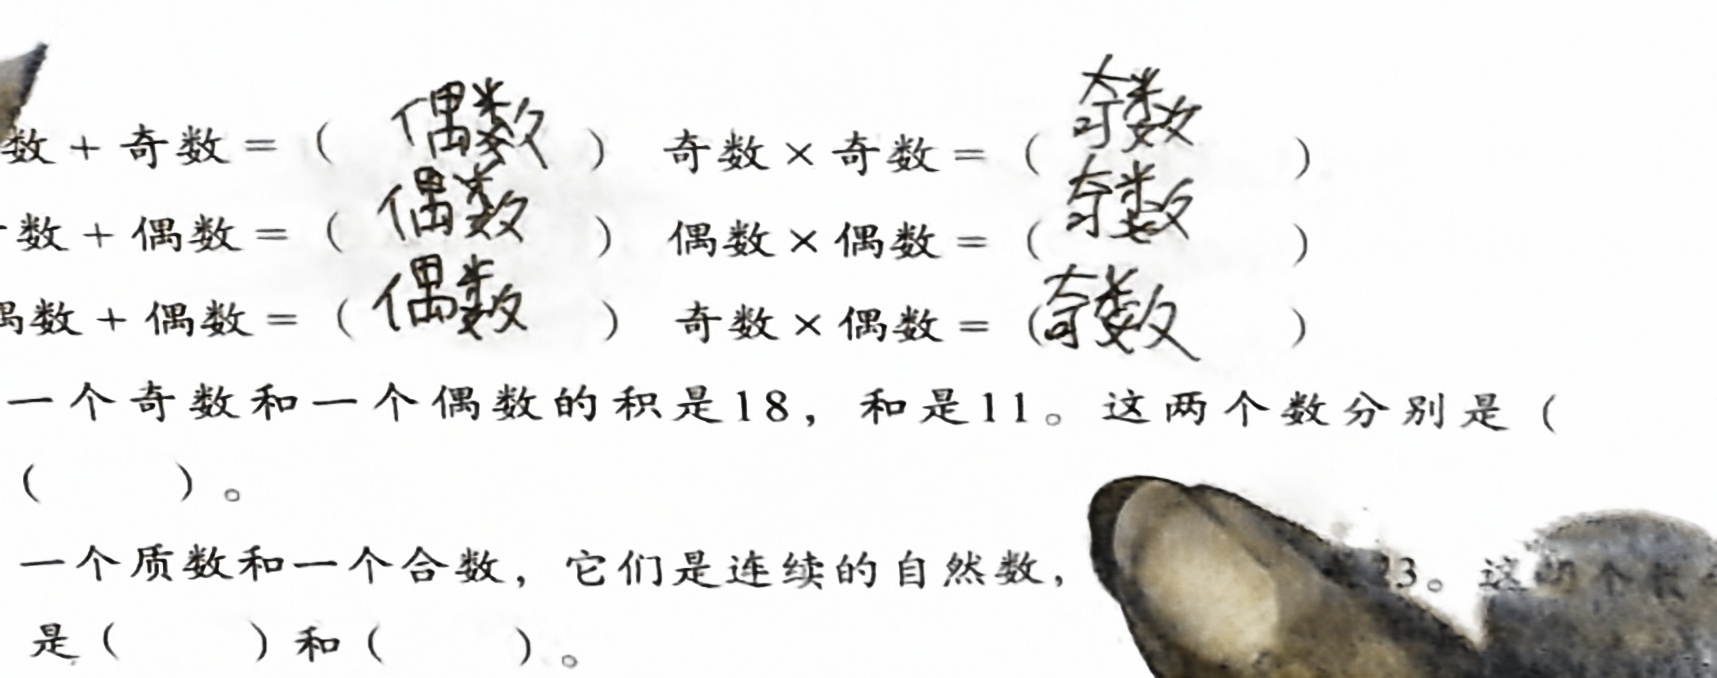 数+奇数=(偶数) 奇数×奇数=(奇数)
数+偶数=(偶数) 偶数×偶数=(奇数)
偶数+偶数=(偶数) 奇数×偶数=(奇数)
一个奇数和一个偶数的积是18，和是11。这两个数分别是(
( )。
一个质数和一个合数，它们是连续的自然数，3。这两个数
是( )和( )。